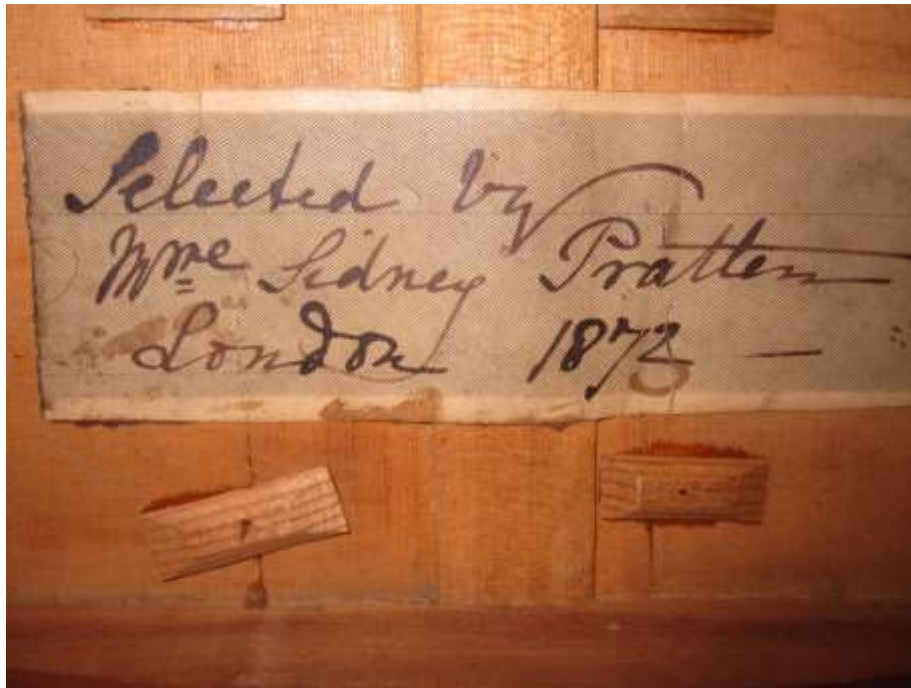 Selected by
Mme Sidney Pratten
London 1873 —